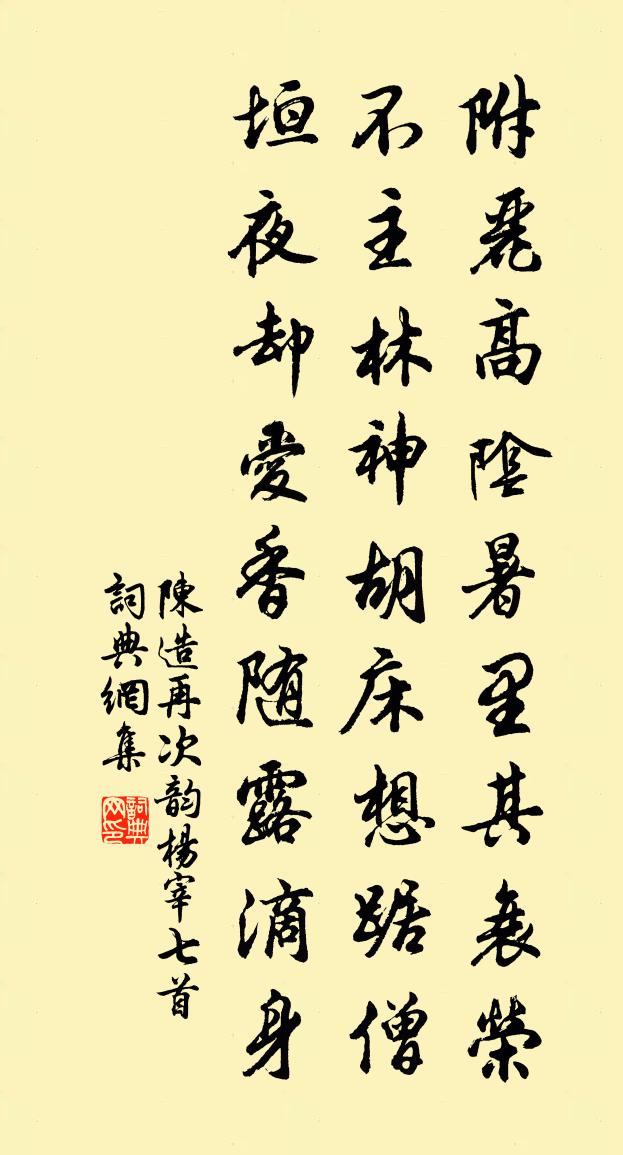 附麗高陰暑里其衰榮
不主林神胡床想踞僧
垣夜却愛香随露滴身
陳造再次韵楊宰七首
詞典網集
詞典网印